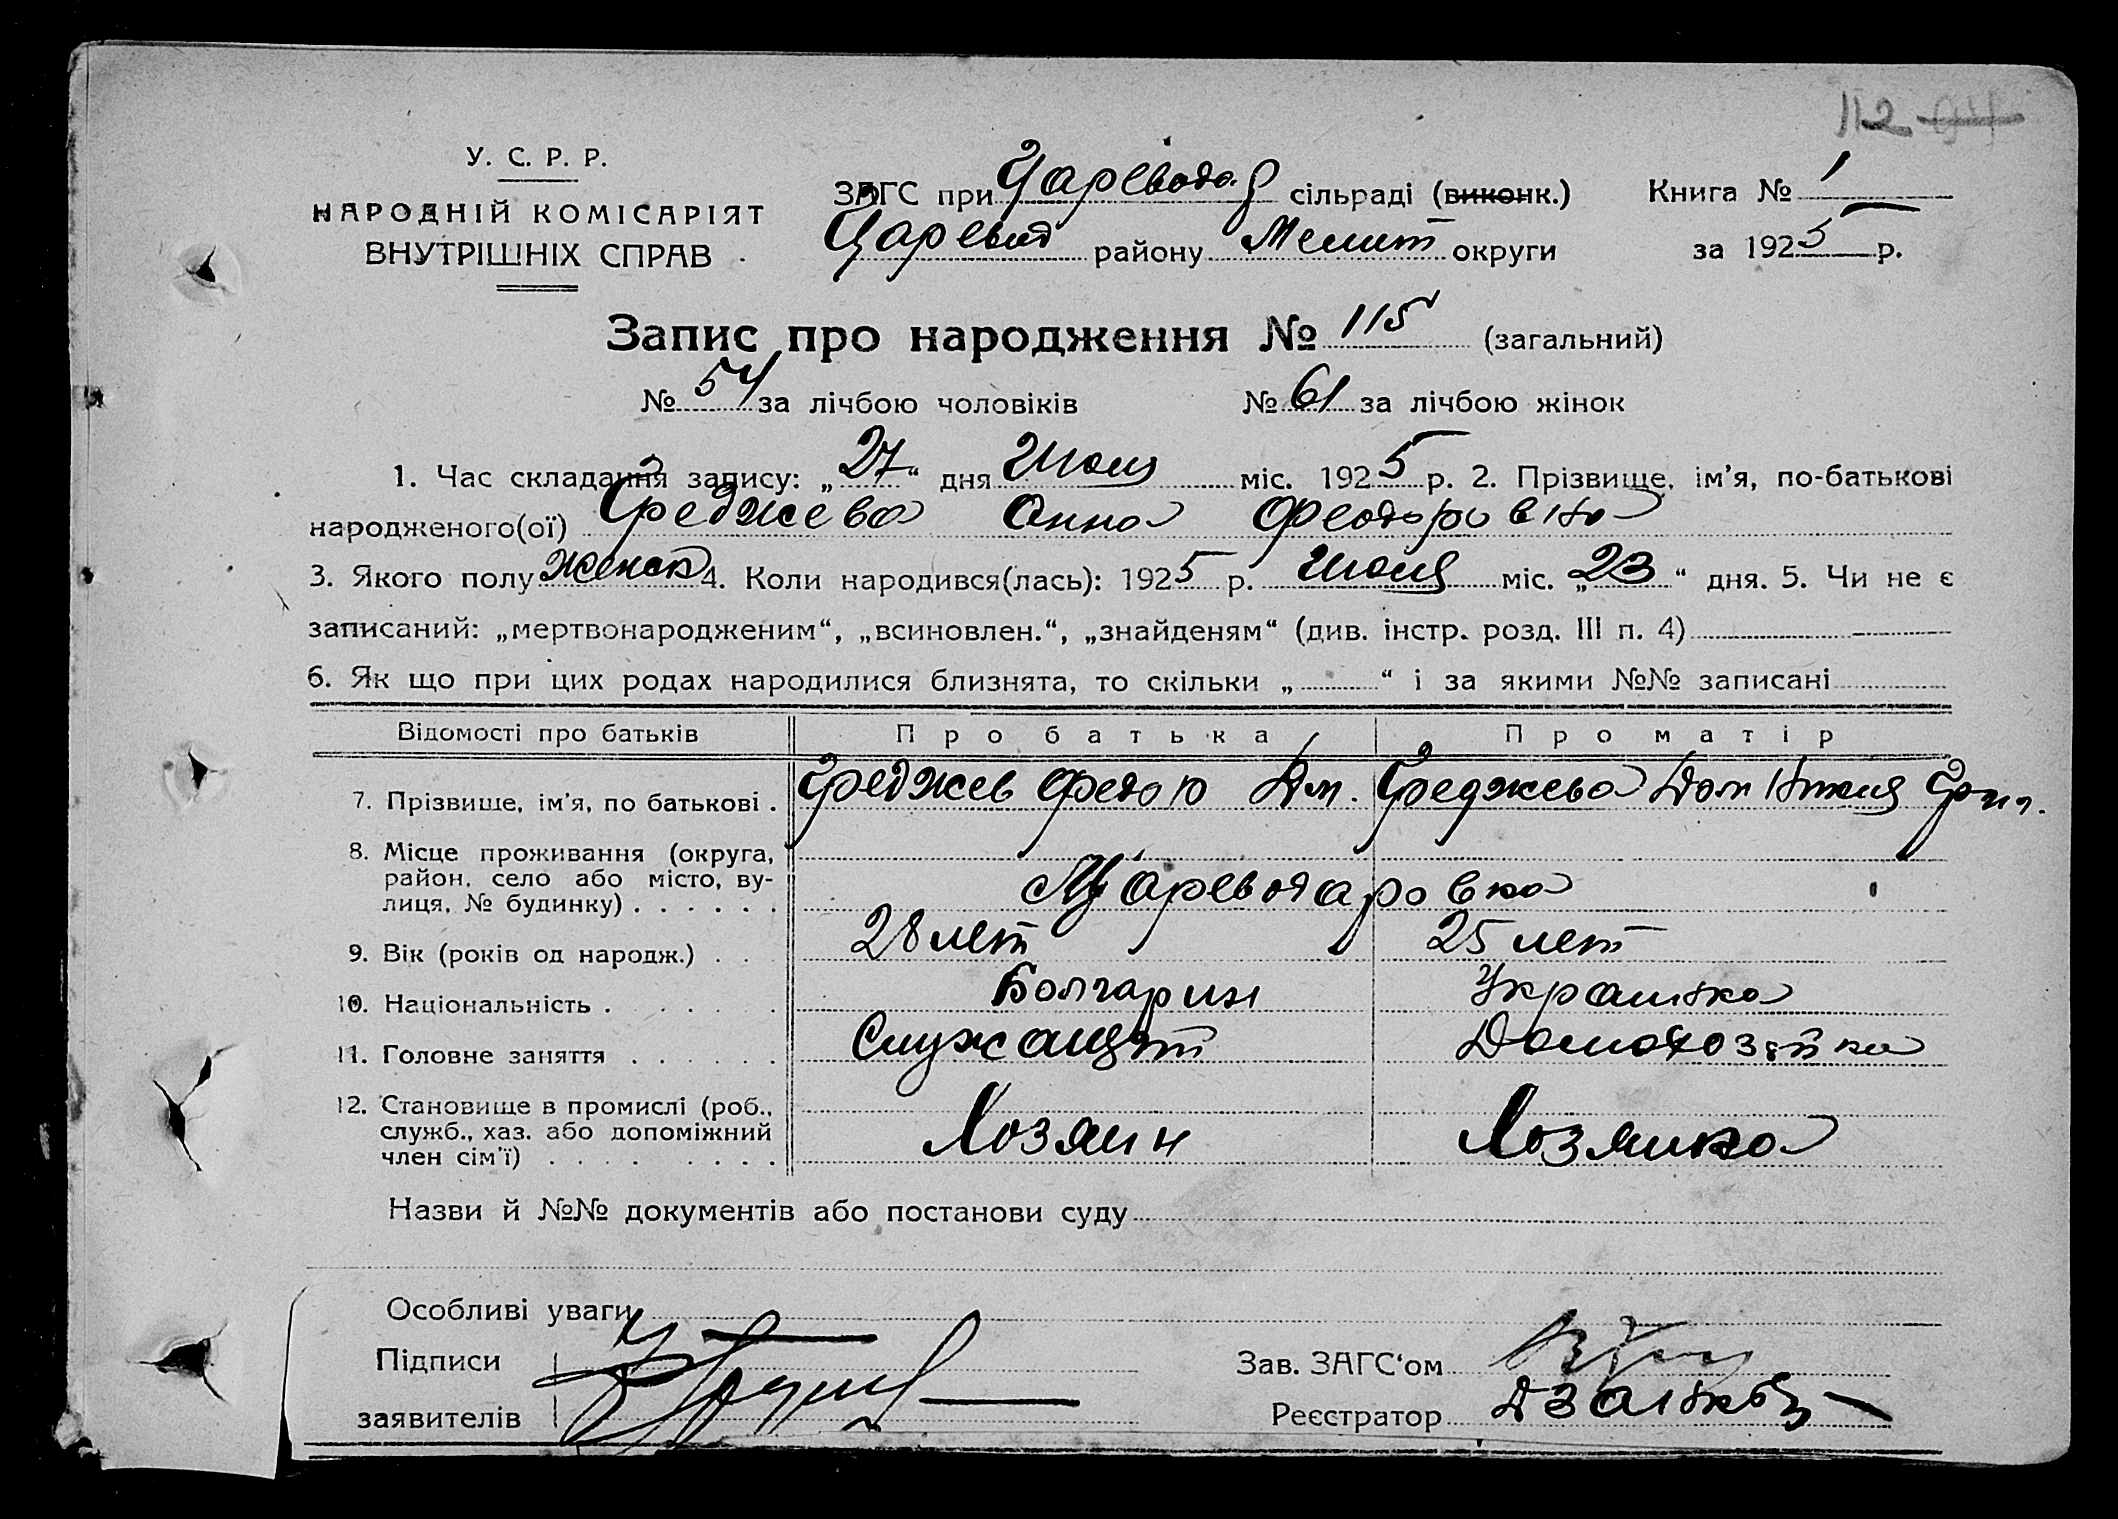 112
У. С. Р. Р.
НАРОДНІЙ КОМІСАРІЯТ
ВНУТРІШНІХ СПРАВ
ЗАГС при Царевода. р сільраді (виконк.) Книга № 1
Царевод району Мелит округи за 1925 р.
Запис про народження № 115 (загальний)
№ 54 за лічбою чоловіків № 61 за лічбою жінок
1. Час складання запису: „27“ дня Июля міс. 1925 р. 2. Прізвище, ім'я, по-батькові
народженого(ої) Греджева Анна Феодоровна
3. Якого полу женск 4. Коли народився(лась): 1925 р. Июля міс. „23“ дня. 5. Чи не є
записаний: „мертвонародженим“, „всиновлен.“, „знайденям“ (див. інстр. розд. III п. 4)
6. Як що при цих родах народилися близнята, то скільки „ “ і за якими №№ записані
Відомості про батьків Про батька Про матір
7. Прізвище, ім'я, по батькові . Греджев Федор Дм. Греджева Домникия Григ.
8. Місце проживання (округа,
район, село або місто, ву-
лиця, № будинку) . . . . . . Цареводаровка
9. Вік (років од народж.) . . 28 лет 25 лет
10. Національність . . . . . . Болгарин Украинка
11. Головне заняття . . . . . . Служащий Домохозяйка
12. Становище в промислі (роб.,
служб., хаз. або допоміжний
член сім'ї) . . . . . . . . Хозяин Хозяйка
Назви й №№ документів або постанови суду
Особливі уваги
Підписи
Зав. ЗАГС'ом
заявителів
Реєстратор